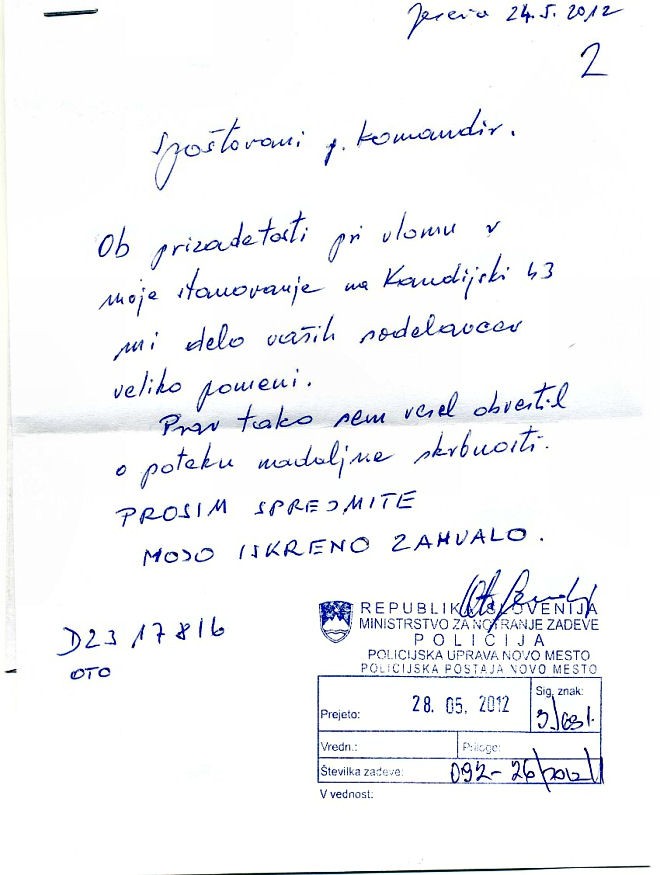 24.5.2012
2
Spoštovani g. komandir.
Ob prizadetosti pri vlomu v
moje stanovanje na Kandijski 43
mi delo vaših sodelavcev
veliko pomeni.
Prav tako sem vesel obvestil
o poteku nadaljne skrbnosti.
PROSIM SPREJMITE
MOJO ISKRENO ZAHVALO.
D23 17816
OTO
REPUBLIKA SLOVENIJA
MINISTRSTVO ZA NOTRANJE ZADEVE
POLICIJA
POLICIJSKA UPRAVA NOVO MESTO
POLICIJSKA POSTAJA NOVO MESTO
Prejeto: 28. 05. 2012 Sig. znak:
Vredn.: Priloge:
Številka zadeve: 092-26/2012/1
V vednost: